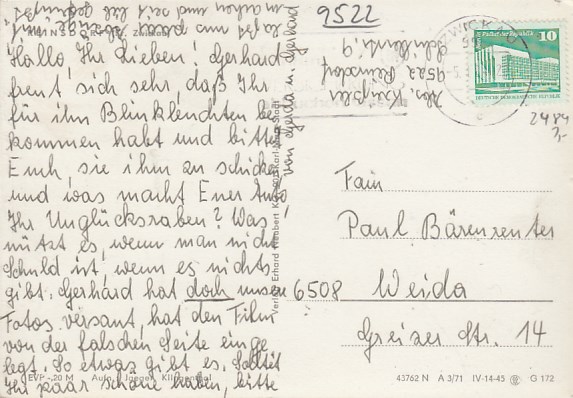 Hallo Ihr Lieben! Gerhard
freut sich sehr, daß Ihr
für ihn Blinkleuchten be
kommen habt und bittet
Euch, sie ihm zu schicken
und was macht Euer Auto,
Ihr Unglücksraben? Was
nützt es, wenn man nicht
Schuld ist, wenn es nichts
gibt. Gerhard hat doch unsere
Fotos versaut, hat den Film
von der falschen Seite einge
legt. So etwas gibt es. Solltet
Ihr paar schöne haben, bitte
von Gerda u. Gerhard
9522
9522 Reinsdorf
ZWICKAU
Palast der Republik
10
DEUTSCHE DEMOKRATISCHE REPUBLIK
2484
Fam
Paul Bärenreuter
6508 Weida
Greizer Str. 14
EVP -,20 M
43762 N A 3/71 IV-14-45 G 172